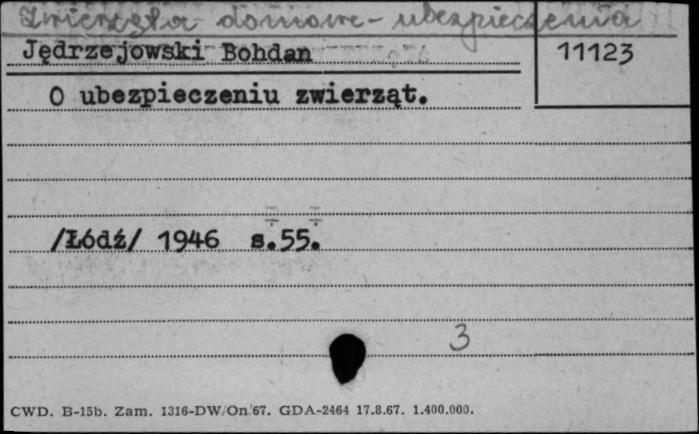 Zwierzęta domowe - ubezpieczenia
Jędrzejowski Bohdan
11123
O ubezpieczeniu zwierząt.
/Łódź/ 1946 s.55.
3
CWD. B-15b. Zam. 1316-DW/On/67. GDA-2464 17.8.67. 1.400.000.